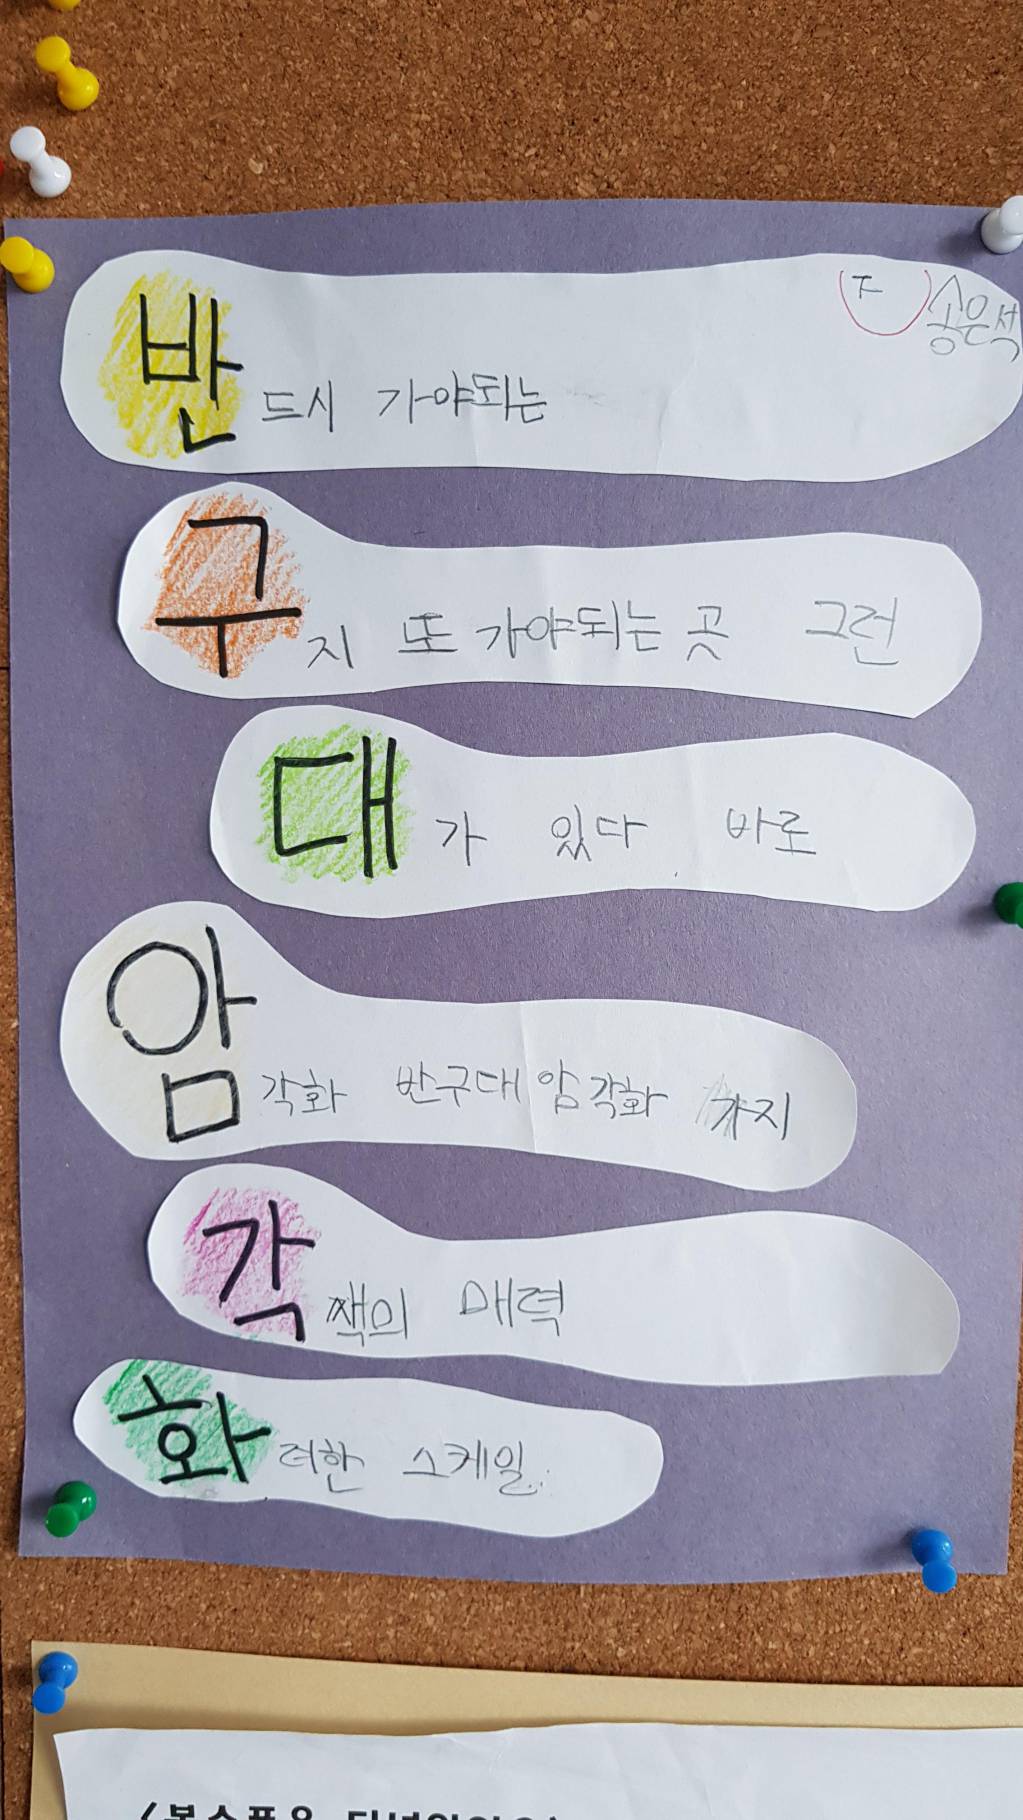 송은석
반드시 가야되는
구지 또 가야되는 곳 그런
대가 있다 바로
암각화 반구대 암각화 가지
각책의 매력
화려한 스케일